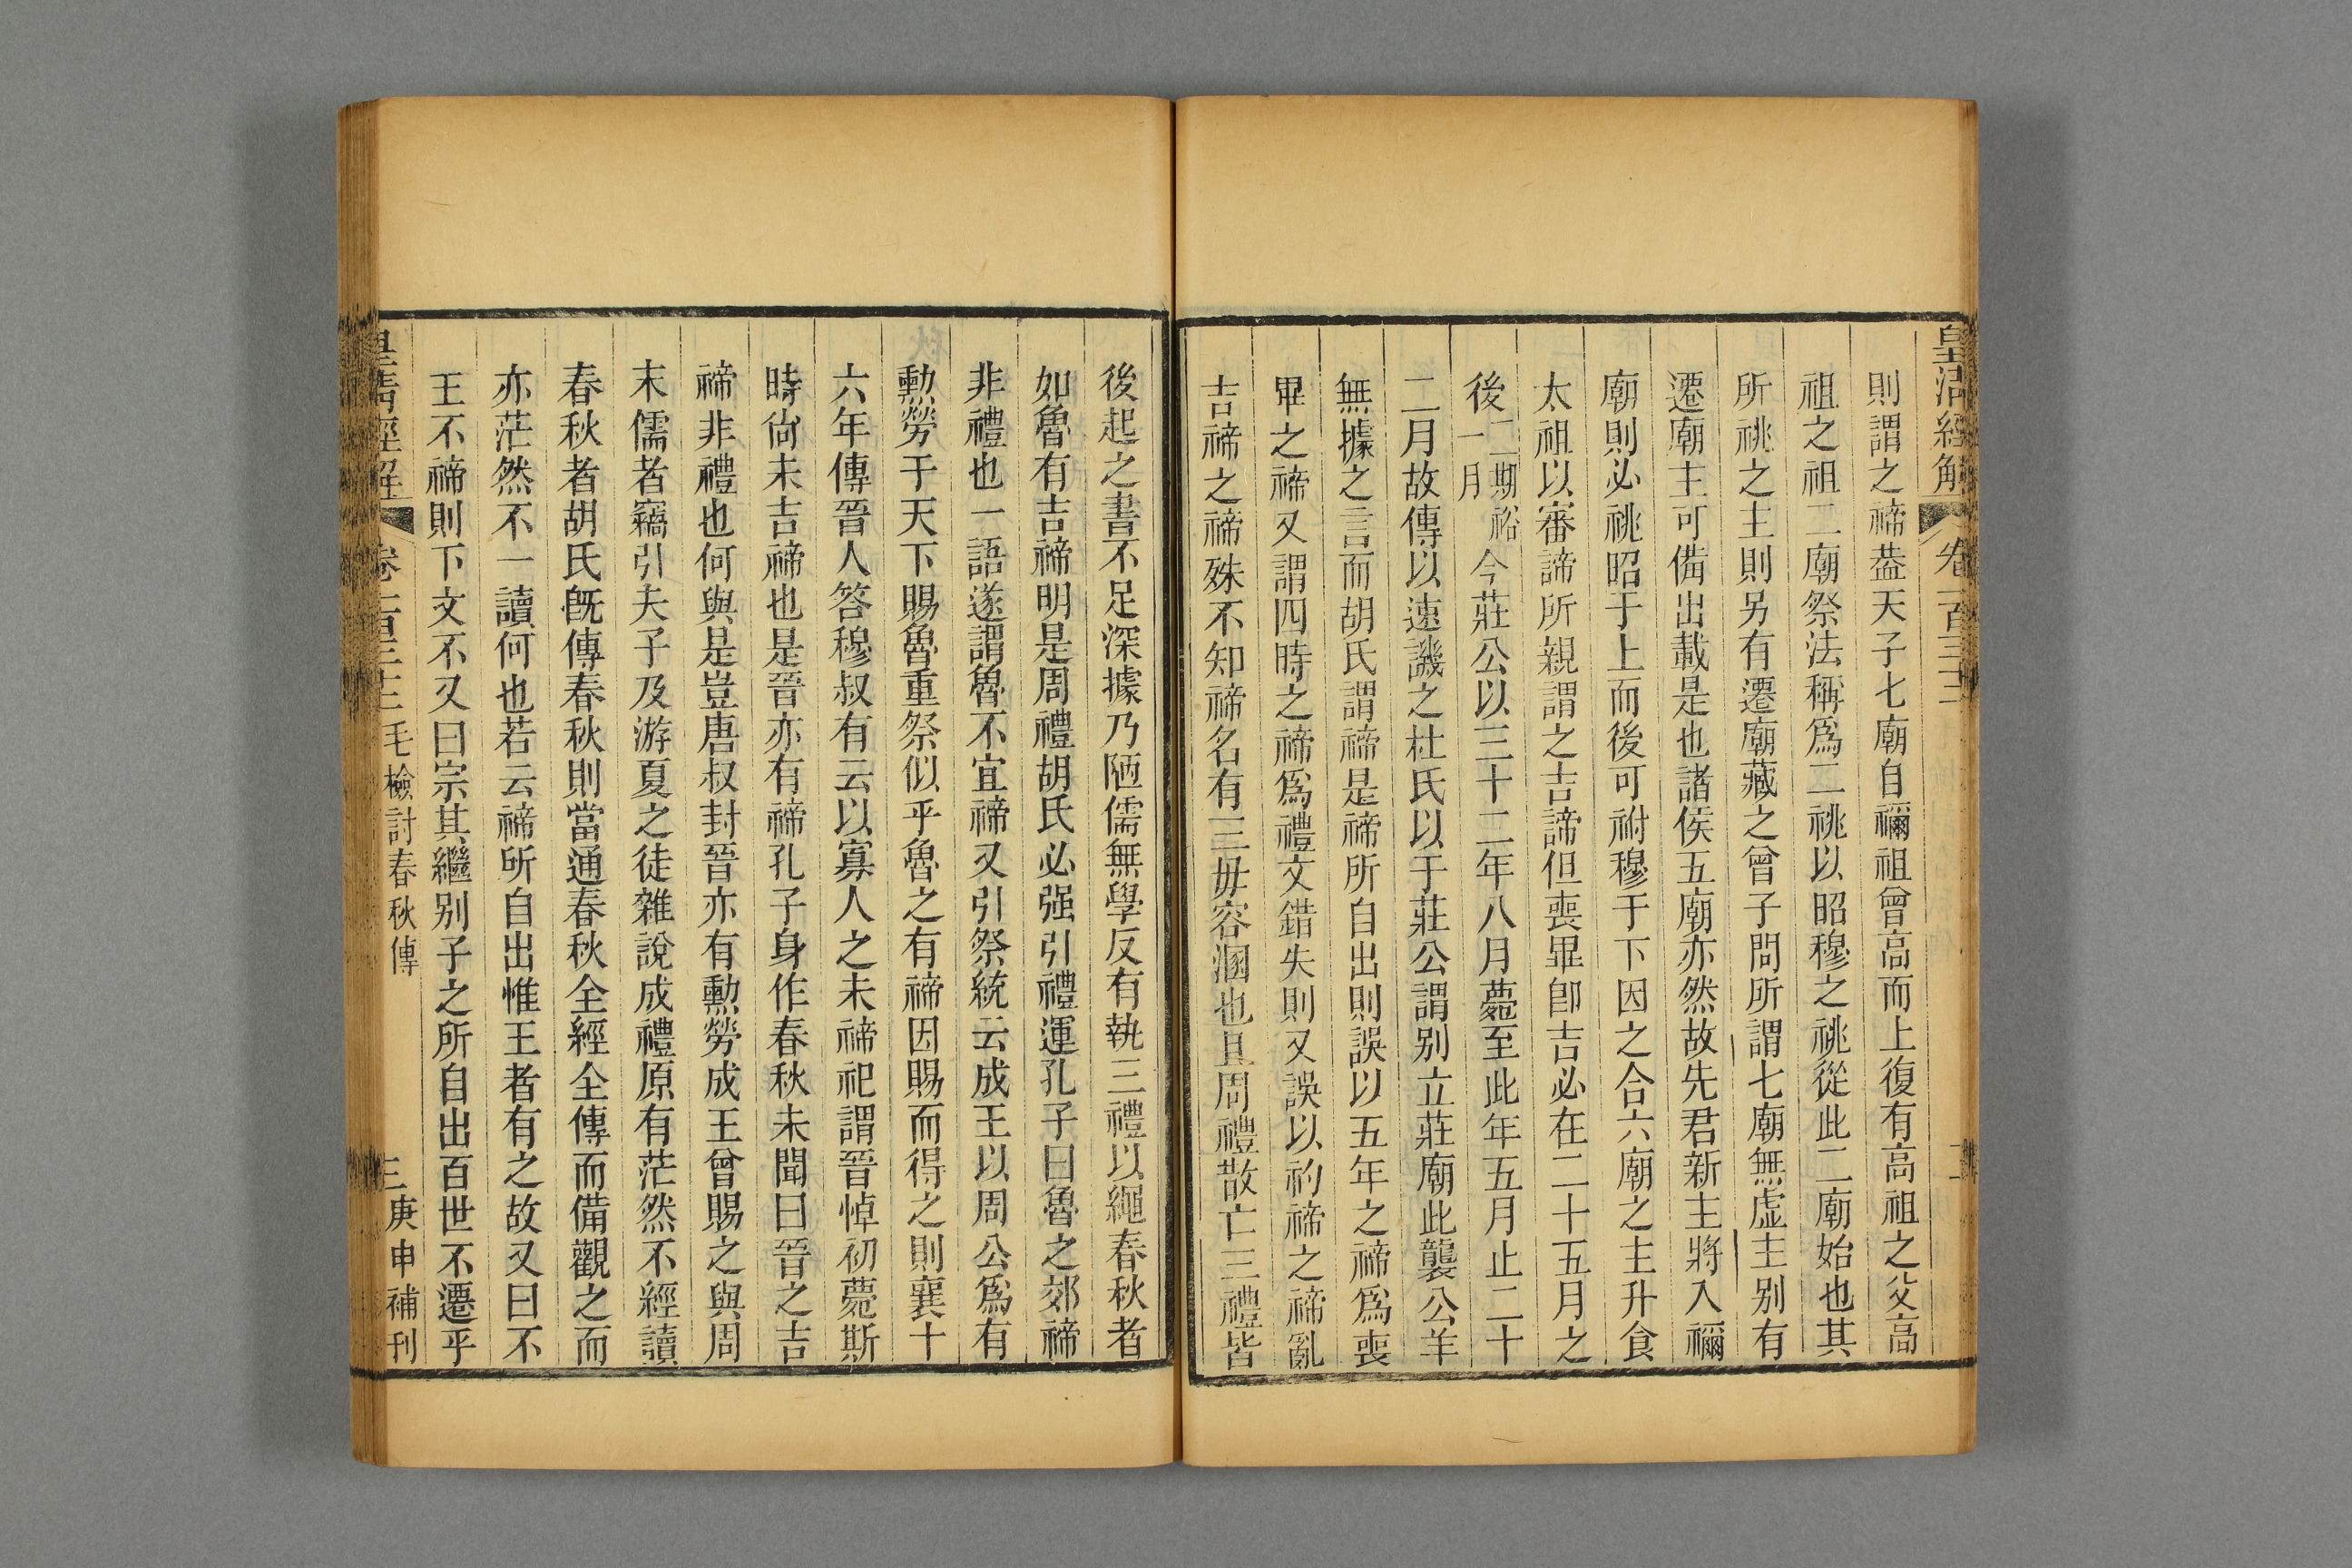 皇清經解 卷一百三十二 二
則謂之禘葢天子七廟自禰祖曾高而上復有高祖之父高
祖之祖二廟祭法稱爲二祧以昭穆之祧從此二廟始也其
所祧之主則另有遷廟藏之曾子問所謂七廟無虛主别有
遷廟主可備出載是也諸侯五廟亦然故先君新主將入禰
廟則必祧昭于上而後可祔穆于下因之合六廟之主升食
太祖以審諦所親謂之吉諦但喪畢卽吉必在二十五月之
後二期祫一月今莊公以三十二年八月薨至此年五月止二十
二月故傳以速譏之杜氏以于莊公謂别立莊廟此襲公羊
無據之言而胡氏謂禘是禘所自出則誤以五年之禘爲喪
畢之禘又謂四時之禘爲禮文錯失則又誤以礿禘之禘亂
吉禘之禘殊不知禘名有三毋容溷也且周禮散亡三禮皆
後起之書不足深據乃陋儒無學反有執三禮以繩春秋者
如魯有吉禘明是周禮胡氏必强引禮運孔子曰魯之郊禘
非禮也一語遂謂魯不宜禘又引祭統云成王以周公爲有
勳勞于天下賜魯重祭似乎魯之有禘因賜而得之則襄十
六年傳晉人答穆叔有云以寡人之未禘祀謂晉悼初薨斯
時尙未吉禘也是晉亦有禘孔子身作春秋未聞曰晉之吉
禘非禮也何與是豈唐叔封晉亦有勳勞成王曾賜之與周
末儒者竊引夫子及游夏之徒雜說成禮原有茫然不經讀
春秋者胡氏旣傳春秋則當通春秋全經全傳而備觀之而
亦茫然不一讀何也若云禘所自出惟王者有之故又曰不
王不禘則下文不又曰宗其繼别子之所自出百世不遷乎
皇清經解 卷一百三十二 毛檢討春秋傳 三 庚申補刊